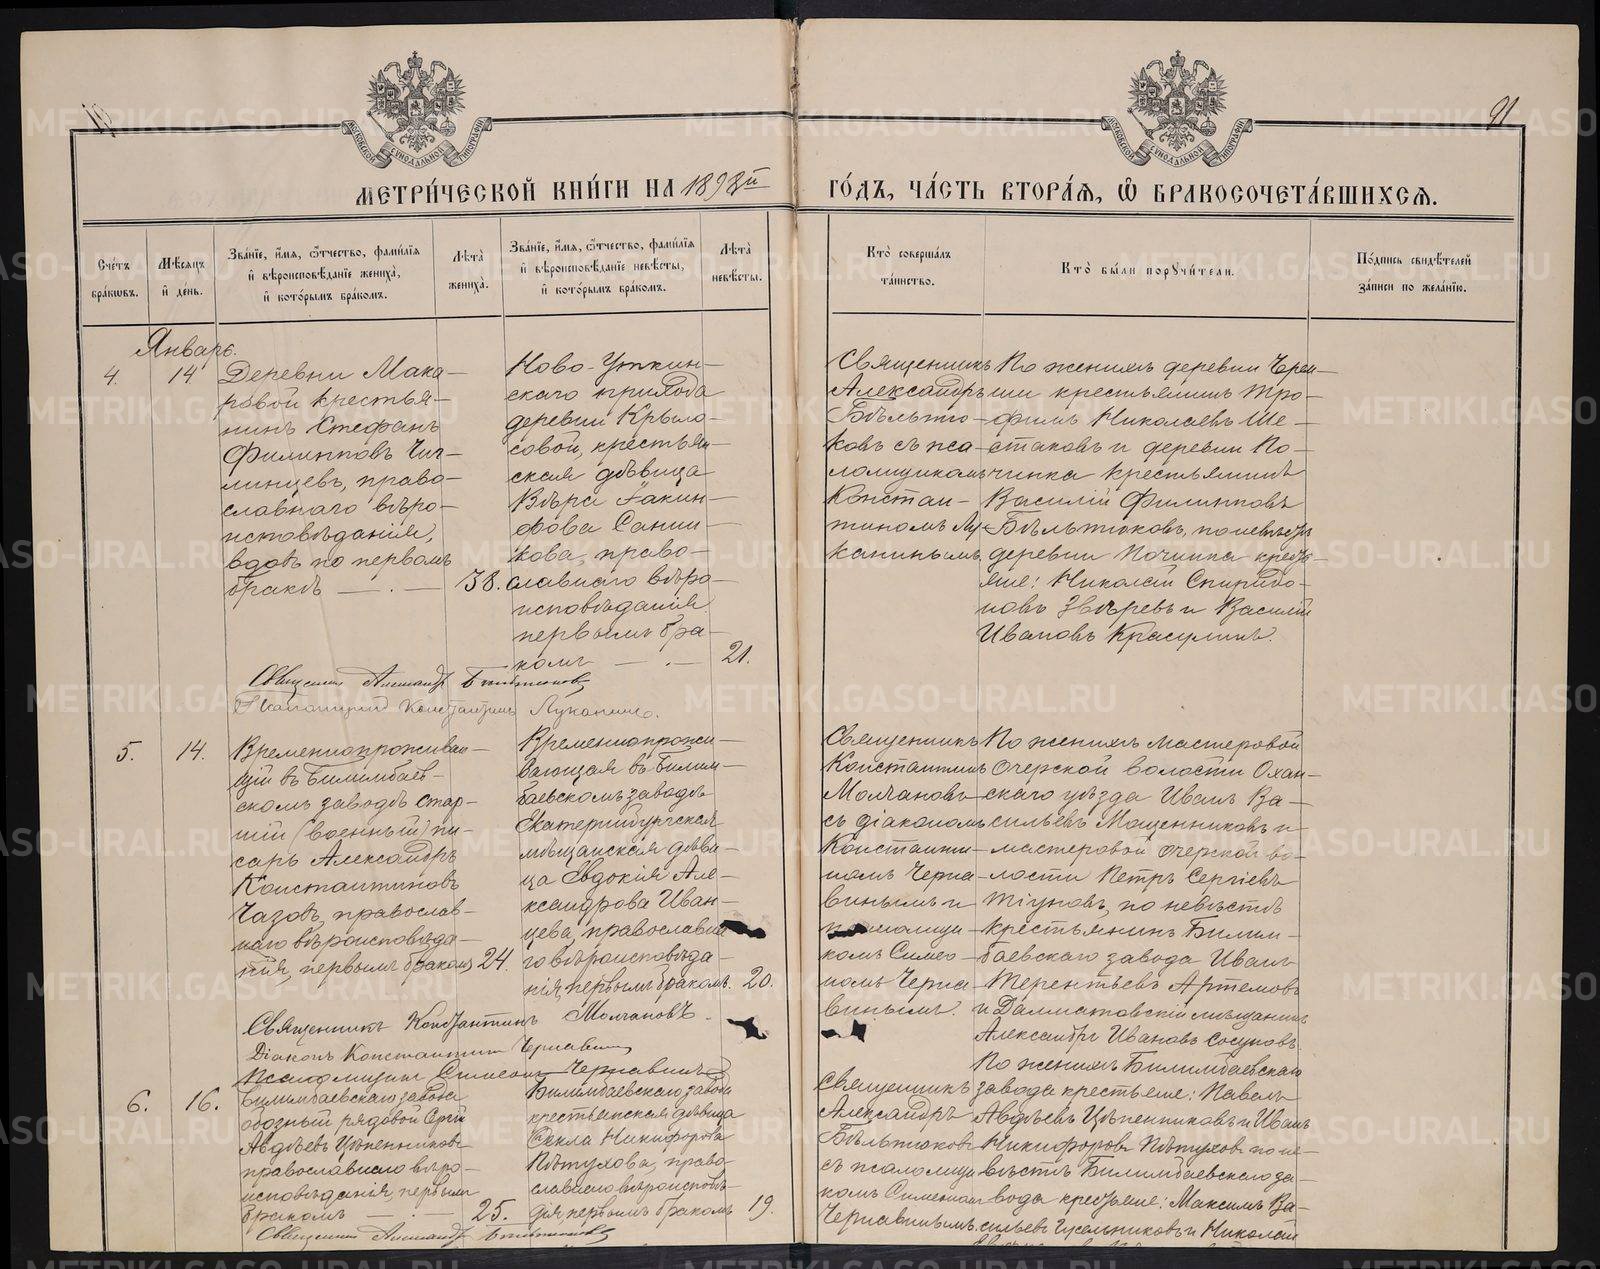 91
МОСКОВСКОЙ СѴНОДАЛЬНОЙ ТИПОГРАФІИ
МОСКОВСКОЙ СѴНОДАЛЬНОЙ ТИПОГРАФІИ
МЕТРИ́ЧЕСКОЙ КНИ́ГИ НА 1898й ГО́ДЪ, ЧА́СТЬ ВТОРА́Ѧ, Ѽ БРАКОСОЧЕТА́ВШИХСѦ.
Сче́тъ бра́кѡвъ.
Мѣ́сяцъ и҆ де́нь.
Зва́нїе, и҆́мя, ѻ҆́тчество, фами́лїя и҆ вѣроисповѣ́данїе жениха̀, и҆ кото́рымъ бра́комъ.
Лѣта̀ жениха̀.
Зва́нїе, и҆́мя, ѻ҆́тчество, фами́лїя и҆ вѣроисповѣ́данїе невѣ́сты, и҆ кото́рымъ бра́комъ.
Лѣта̀ невѣ́сты.
Кто̀ соверша́лъ та́инство.
Кто̀ бы́ли порꙋчи́тели.
По́дпись свидѣ́телей за́писи по жела́нїю.
Январь.
4.
14
Деревни Мака-
ровой крестья-
нинъ Стефанъ
Филипповъ Чиг-
линцевъ, право-
славнаго вѣро-
исповѣданія,
вдовъ по первомъ
бракѣ
38.
Ново-Уткин-
скаго прихода
деревни Крыло-
совой, крестьян-
ская дѣвица
Вѣра Іакин-
фова Санни-
кова, право-
славнаго вѣро-
исповѣданія
первымъ бра-
комъ
21.
Священникъ
Александръ
Бѣльтю-
ковъ съ пса-
ломщикомъ
Констан-
тиномъ Лу-
канинымъ
По женихѣ деревни Черем-
ши крестьянинъ Тро-
фимъ Николаевъ Ше-
стаковъ и деревни По-
чинка крестьянинъ
Василій Филипповъ
Бѣльтюковъ, по невѣстѣ
деревни Починка кресть-
яне: Николай Спиридо-
новъ Звѣревъ и Василій
Ивановъ Красулинъ.
Священникъ Александръ Бѣльтюковъ
Псаломщикъ Константинъ Луканинъ.
5.
14.
Временнопроживаю-
щій въ Билимбаев-
скомъ заводѣ стар-
шій (военный) пи-
сарь Александръ
Константиновъ
Чазовъ, православ-
наго вѣроисповѣда-
нія, первымъ бракомъ
24.
Временнопрожи-
вающая въ Билим-
баевскомъ заводѣ
Екатеринбургская
мѣщанская дѣви-
ца Евдокія Але-
ксандрова Иван-
цева, православна-
го вѣроисповѣда-
нія, первымъ бракомъ.
20.
Священникъ
Константинъ
Молчановъ
съ діакономъ
Константи-
номъ Черна-
винымъ и
псаломщи-
комъ Симео-
номъ Черна-
винымъ.
По женихѣ мастеровой
Очерской волости Охан-
скаго уѣзда Иванъ Ва-
сильевъ Мощенниковъ и
мастеровой Очерской во-
лости Петръ Сергіевъ
Тіуновъ, по невѣстѣ
крестьянинъ Билим-
баевскаго завода Иванъ
Терентьевъ Артемовъ
и Далматовскій мѣщанинъ
Александръ Ивановъ Сосуновъ.
Священникъ Константинъ Молчановъ.
Діаконъ Константинъ Чернавинъ
Псаломщикъ Симеонъ Чернавинъ
6.
16.
Билимбаевскаго завода
рядовой
Авдѣевъ Цѣпенниковъ
православнаго вѣро-
исповѣданія, первымъ
бракомъ
25.
Билимбаевскаго завода
крестьянская дѣвица
Ѳекла Никифорова
Пѣтухова, право-
славнаго вѣроисповѣ-
дія, первымъ бракомъ
19.
Священникъ
Александръ
Бѣльтюковъ
съ псаломщи-
комъ Симеономъ
Чернавинымъ.
По женихѣ Билимбаевскаго
завода крестьяне: Павелъ
Авдѣевъ Цѣпенниковъ и Иванъ
Никифоровъ Пѣтуховъ по не-
вѣстѣ Билимбаевскаго за-
вода крестьяне: Максимъ Ва-
сильевъ Гусельниковъ и Николай
Священникъ Александръ Бѣльтюковъ
METRIKI.GASO-URAL.RU